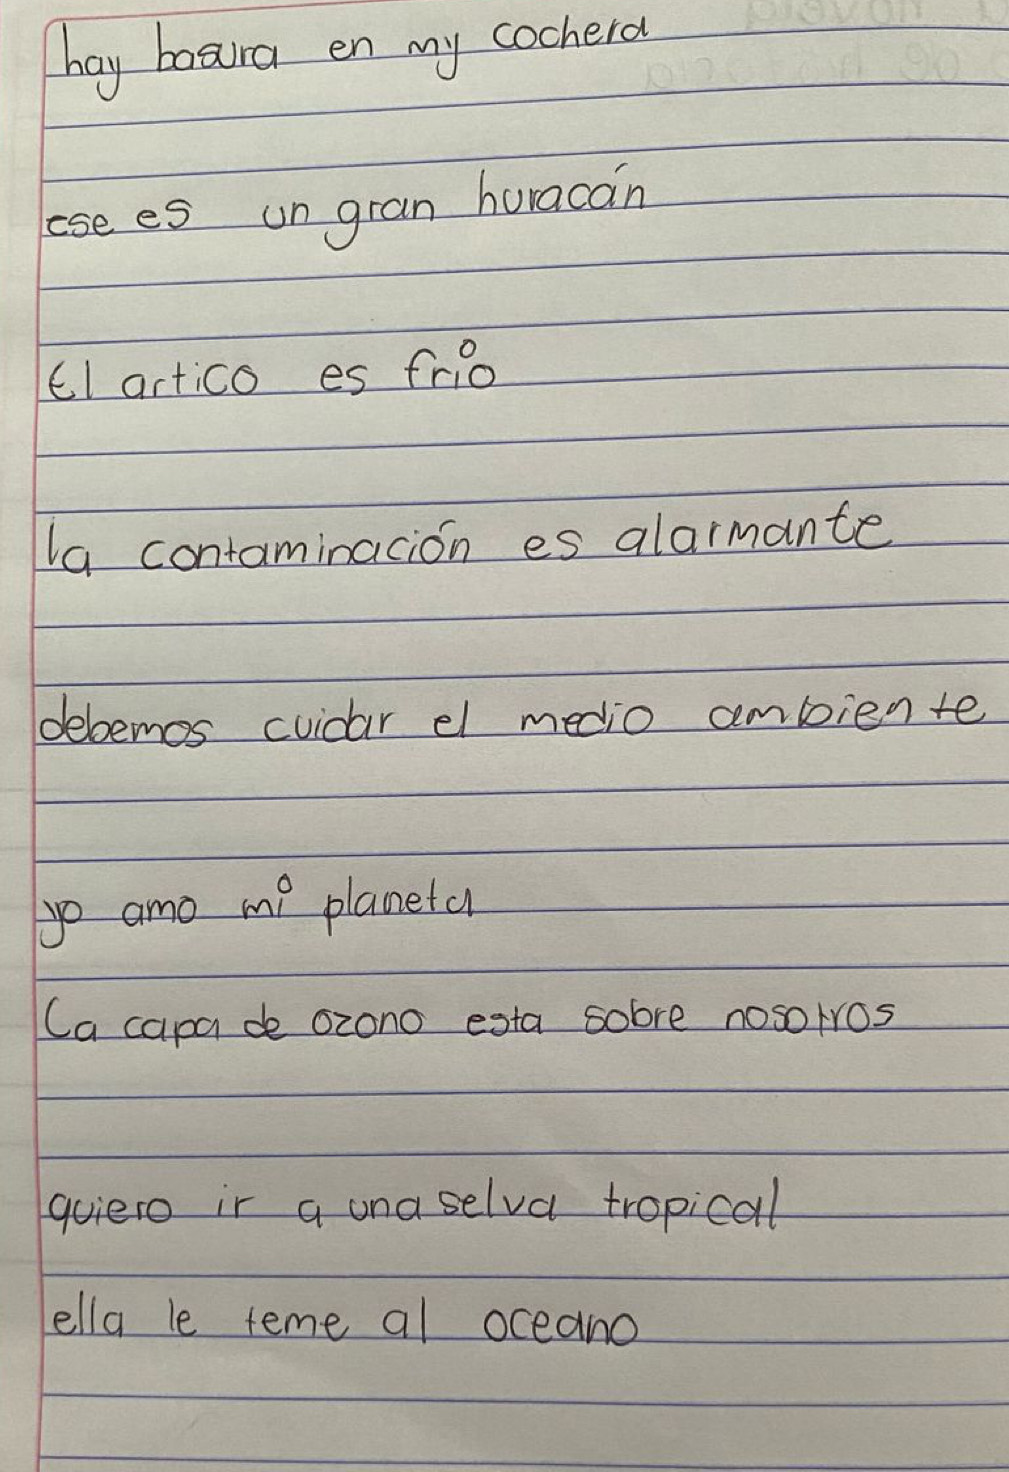 hay basura en my cochera
ese es un gran huracán
El artico es frio
la contaminación es alarmante
debemos cuidar el medio ambiente
yo amo mi planeta
La capa de ozono esta sobre nosotros
quiero ir a una selva tropical
ella le teme al oceano